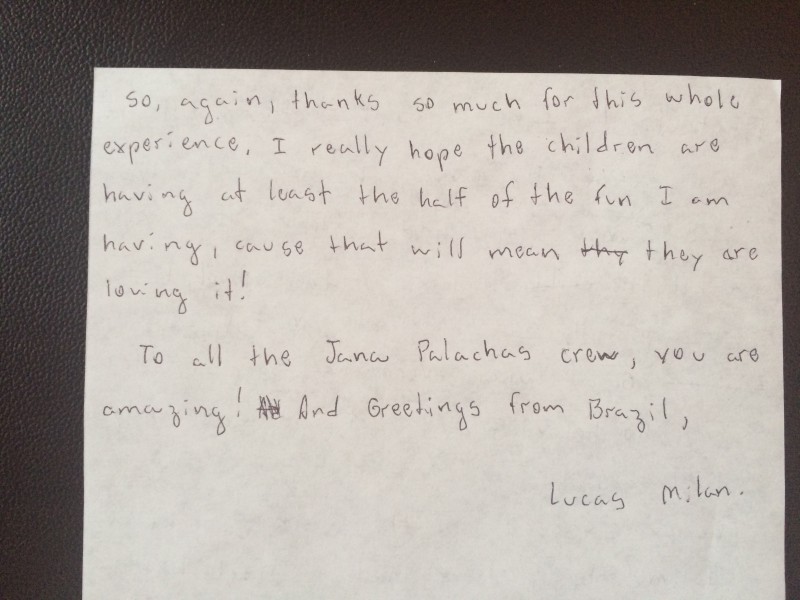 So, again, thanks so much for this whole
experience. I really hope the children are
having at least the half of the fun I am
having, cause that will mean thy they are
loving it!
To all the Jana Palachas crew, you are
amazing! And Greetings from Brazil,
Lucas Milan.